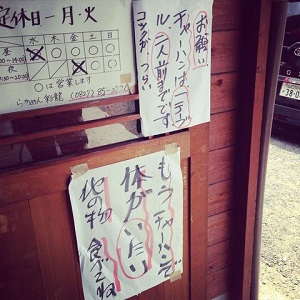 定休日 一月・火
水 木 金 土 日
昼
夜
○は営業します
らーめん 彩龍 (0832) 85-0227
お願い
チャーハンは一テーブ
ル一人前までです
コックが つらい
もうチャーハンで
体がいたい
他の物 食べてね